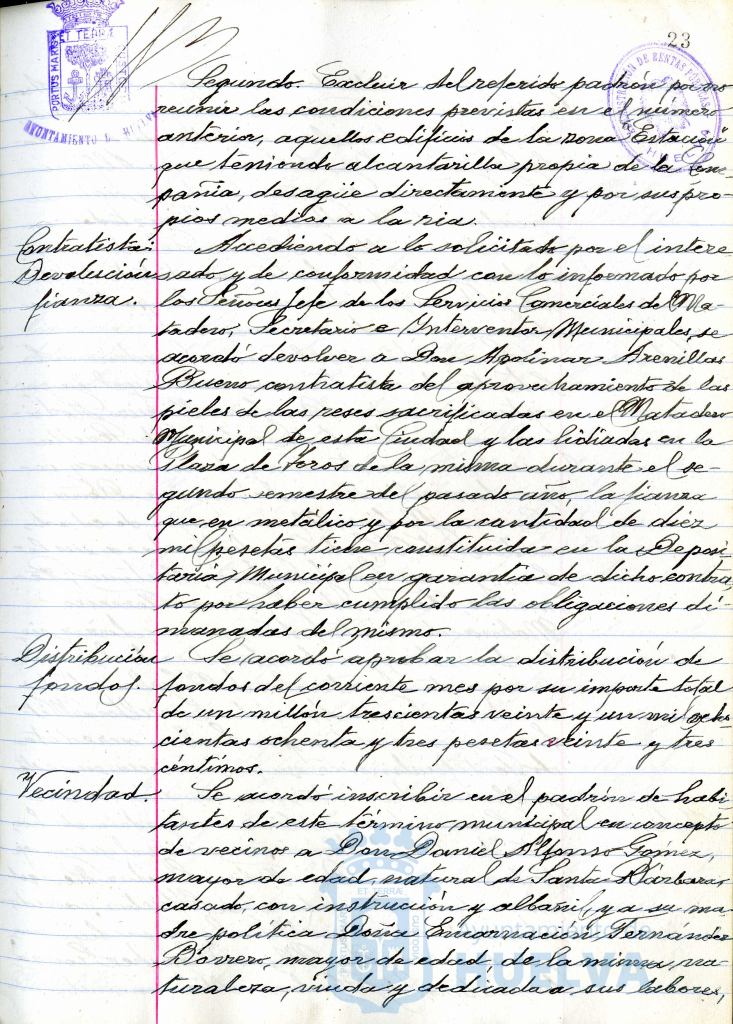 23
PORTUS MARIS ET TERRÆ CUSTODIA
AYUNTAMIENTO HUELVA
DE RENTAS PÚBLICAS
HUELVA
Segundo. Excluir del referido padrón por no
reunir las condiciones previstas en el número
anterior, aquellos edificios de la zona "Estación"
que teniendo alcantarilla propia de la Com-
pañia, desagüe directamente y por sus pro-
pios medios a la ria.
Contratista:
Devolución
fianza.
Accediendo a lo solicitado por el intere-
sado y de conformidad con lo informado por
los Señores Jefe de los Servicios Comerciales del Ma-
tadero, Secretario e Interventor Municipales, se
acordó devolver a Don Apolinar Arenillas
Bueno, contratista del aprovechamiento de las
pieles de las reses sacrificadas en el Matadero
Municipal de esta Ciudad y las lidiadas en la
Plaza de Toros de la misma durante el se-
gundo semestre del pasado año, la fianza
que en metálico y por la cantidad de diez
mil pesetas tiene constituida en la Deposi-
taria Municipal en garantia de dicho contra-
to por haber cumplido las obligaciones di-
manadas del mismo.
Distribución
fondos.
Se acordó aprobar la distribución de
fondos del corriente mes por su importe total
de un millón trescientas veinte y un mil ocho-
cientas ochenta y tres pesetas veinte y tres
céntimos.
Vecindad.
Se acordó inscribir en el padrón de habi-
tantes de este término municipal en concepto
de vecinos a Don Daniel Alfonso Gómez,
mayor de edad, natural de Santa Barbara,
casado, con instrucción y albañil, y a su ma-
dre política Doña Encarnación Fernández
Borrero, mayor de edad, de la misma na-
turaleza, viuda y dedicada a sus labores,
Ayuntamiento de
HUELVA